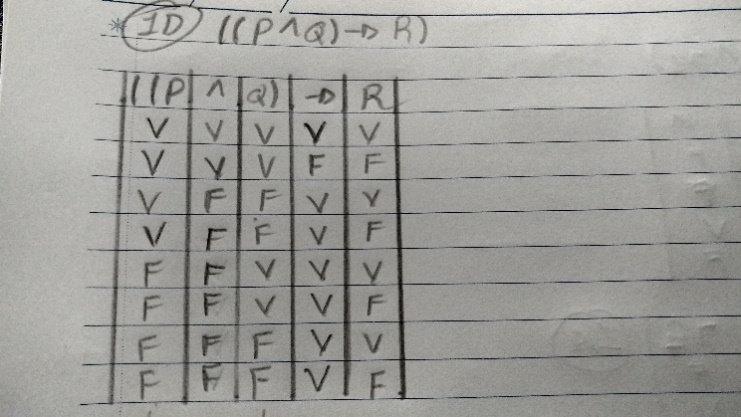 * 1D ((P∧Q)→R)
((P ∧ Q) → R
V V V V V
V V V F F
V F F V V
V F F V F
F F V V V
F F V V F
F F F V V
F F F V F